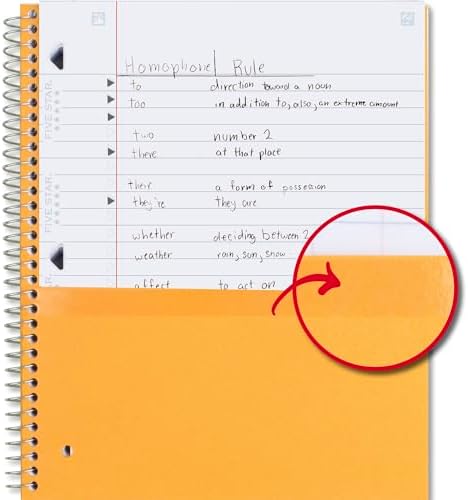 Homophone Rule
to direction toward a noun
too in addition to, also, an extreme amount
two number 2
there at that place
a form of possession
they're they are
whether deciding between 2
weather rain, sun, snow
affect to act on
FIVE STAR.
FIVE STAR.